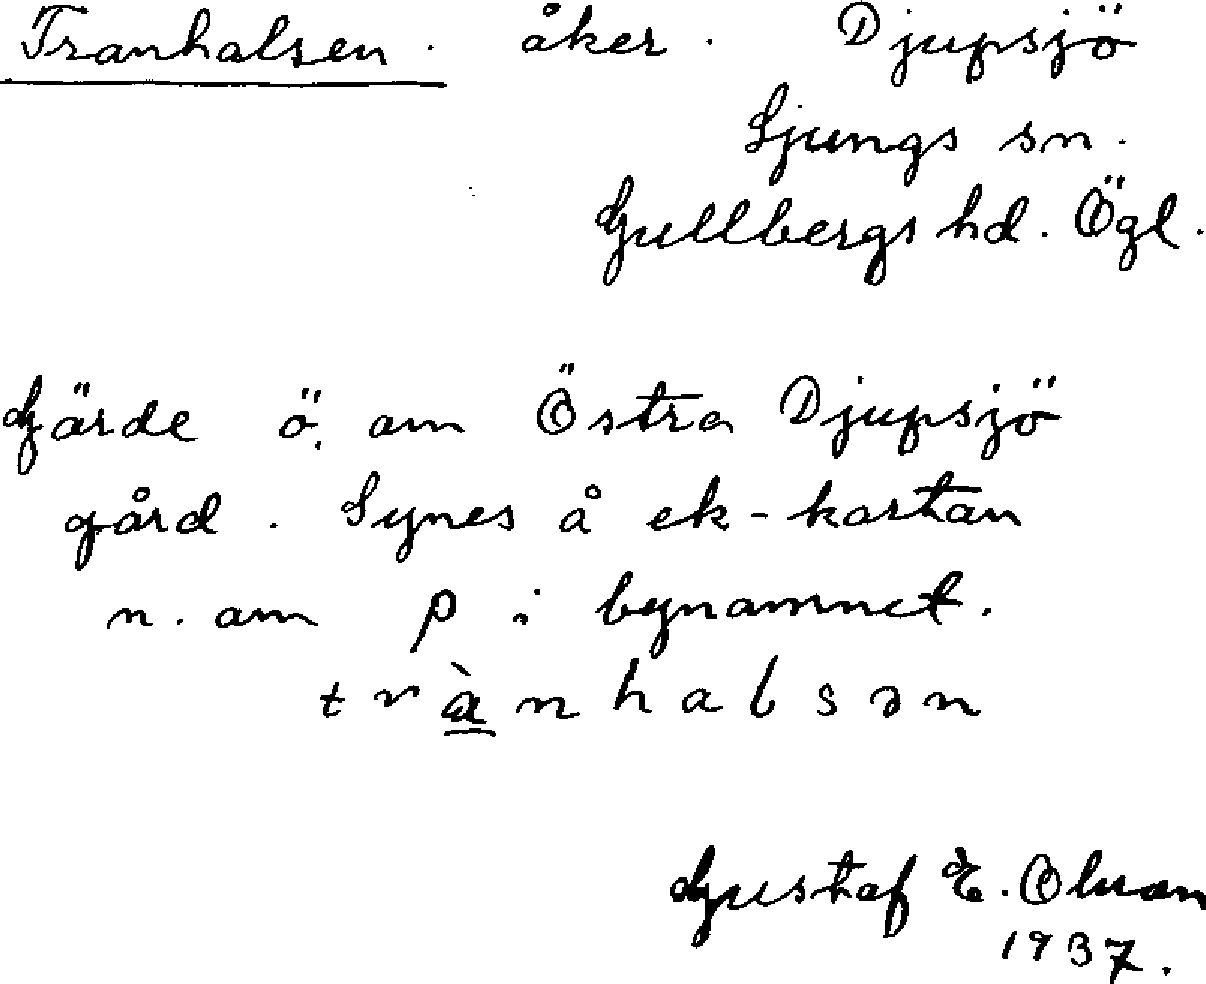 Tranhalsen. åker. Djupsjö
Ljungs sn.
Gullbergs hd. Ögl.
Gärde ö. om Östra Djupsjö
gård. Synes å ek-kartan
n. om p i bynamnet.
trà̲nhalsən
Gustaf E. Olsson
1937.